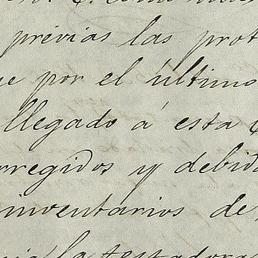 previas las prot
e por el último
llegado á esta
rregidos y debid
inventarios de
la testadora